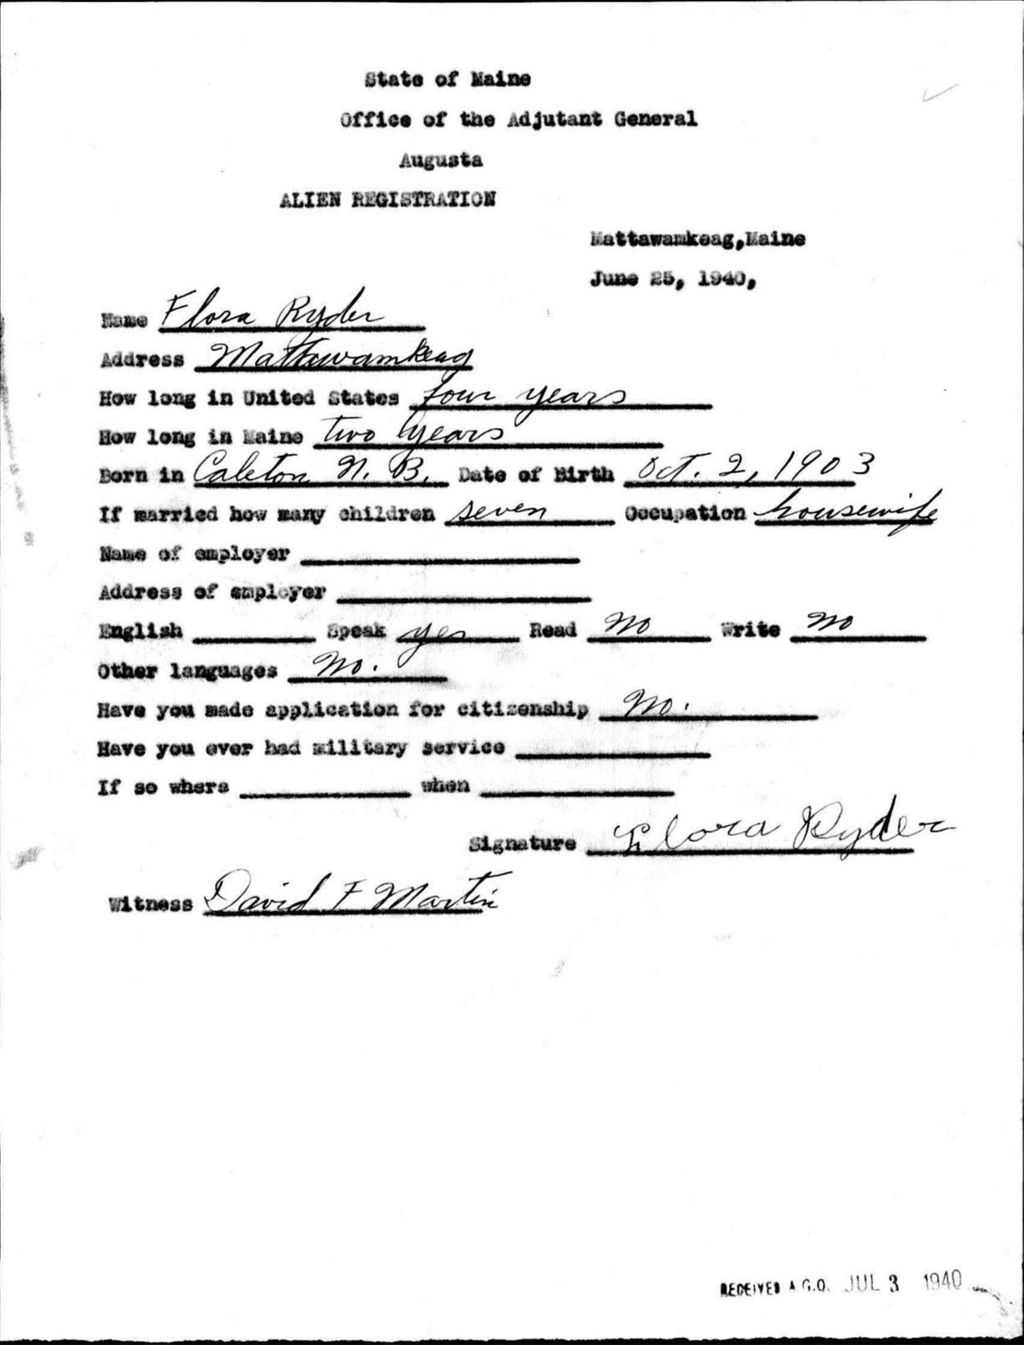 State of Maine
Office of the Adjutant General
Augusta
ALIEN REGISTRATION
Mattawamkeag,Maine
June 25, 1940,
Name Flora Ryder
Address Mattawamkeag
How long in United States four years
How long in Maine two years
Born in Caleton N. B. Date of Birth Oct. 2, 1903
If married how many children seven Occupation housewife
Name of employer
Address of employer
English Speak yes Read No Write No
Other languages No.
Have you made application for citizenship No.
Have you ever had military service
If so where when
Signature Flora Ryder
Witness David F Martin
RECEIVED A.G.O. JUL 3 1940